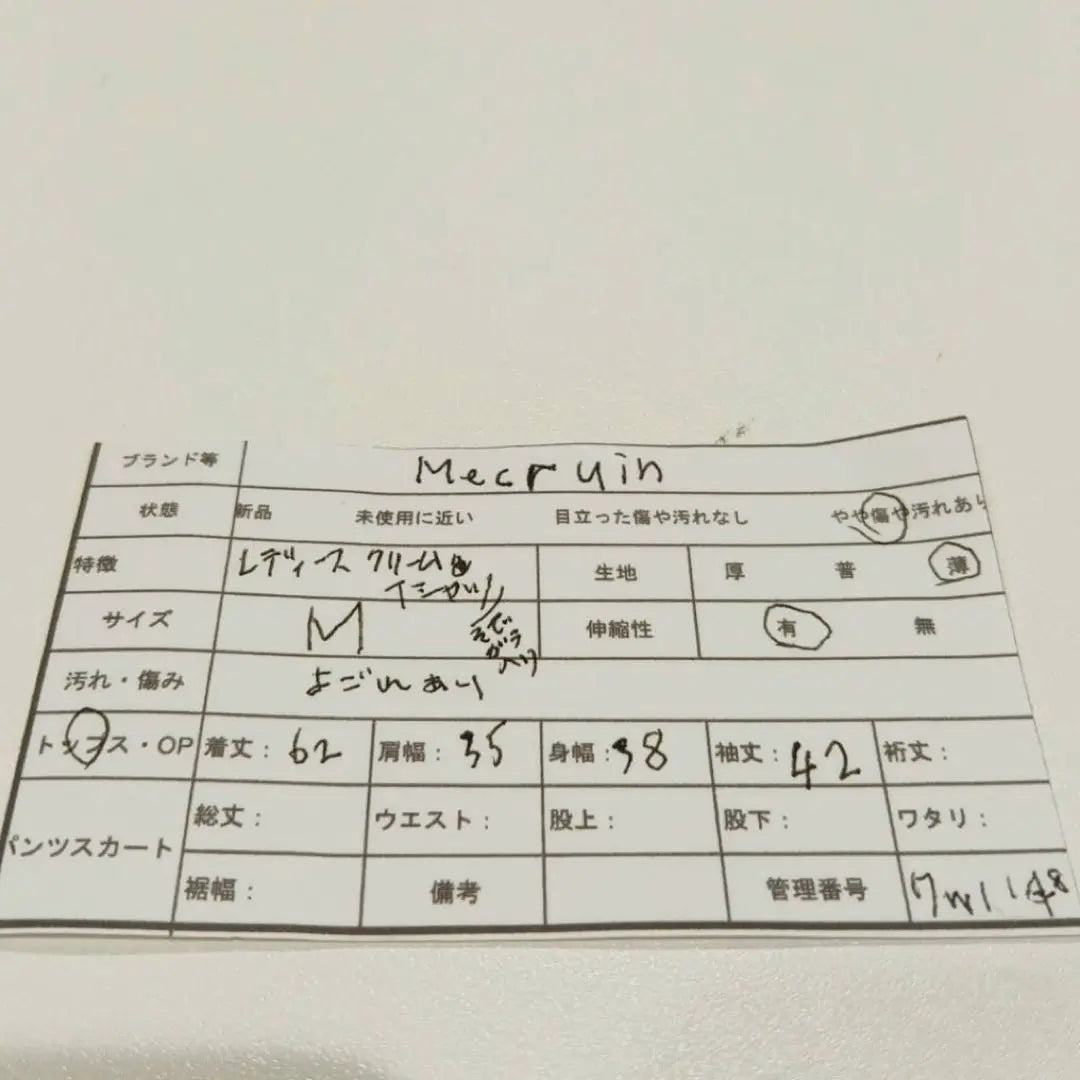 ブランド等 Mecruin
状態 新品 未使用に近い 目立った傷や汚れなし やや傷や汚れあり
特徴 レディース クリーム色
生地 厚 普 薄
サイズ M
そで
がら
入り
伸縮性 有 無
汚れ・傷み よごれあり
トップス・OP 着丈: 62 肩幅: 35 身幅: 38 袖丈: 42 裄丈:
パンツスカート 総丈: ウエスト: 股上: 股下: ワタリ:
裾幅: 備考 管理番号